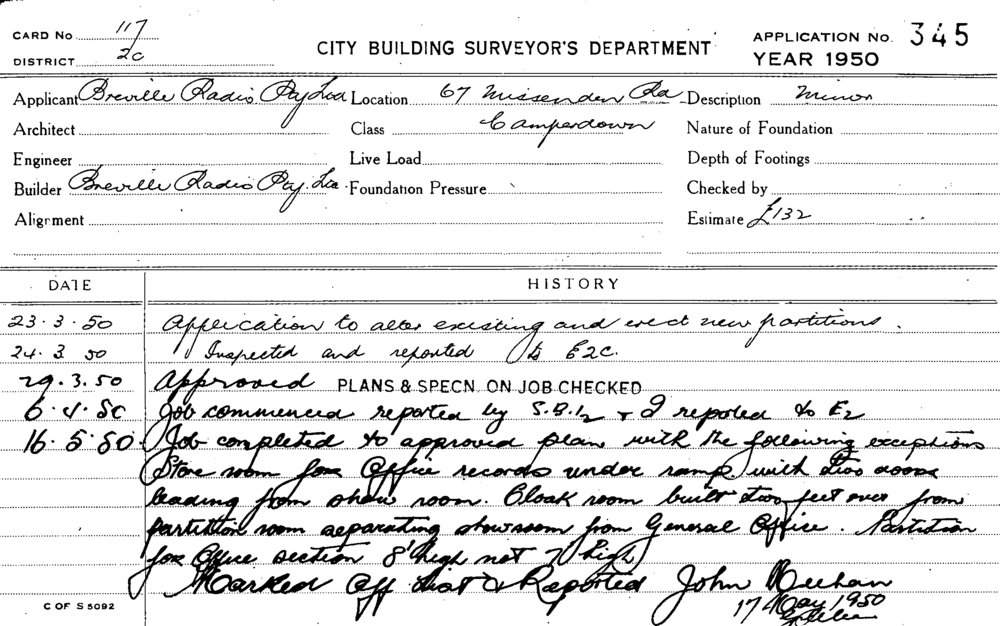 CARD No 117
DISTRICT 2C
CITY BUILDING SURVEYOR'S DEPARTMENT
APPLICATION No. 345
YEAR 1950
Applicant Breville Radio Pty Ltd Location 67 Missenden Rd Description Minor
Architect Class Camperdown Nature of Foundation
Engineer Live Load Depth of Footings
Builder Breville Radio Pty. Ltd. Foundation Pressure Checked by
Alignment Estimate £132
DATE HISTORY
23.3.50 Application to alter existing and erect new partitions.
24.3.50 Inspected and reported to E2C.
29.3.50 Approved PLANS & SPECN. ON JOB CHECKED
6.4.50 Job commenced reported by S.B.I2 & I reported to E2
16.5.50. Job completed to approved plan with the following exceptions
Store room for Office records under ramp with two doors
leading from show room. Cloak room built two feet over from
partition room separating showroom from General Office. Partition
for Office section 8' high not 7' high
Marked Off List & Reported John Meehan
17 May 1950
C OF S 5092